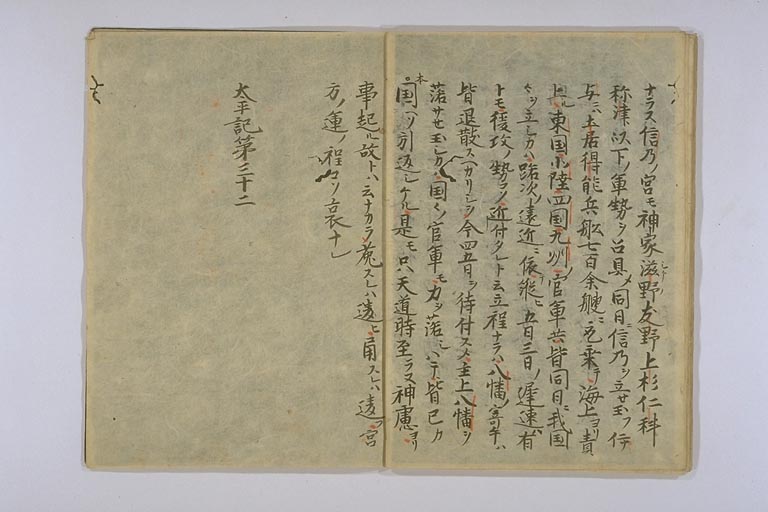 ナラス信乃ノ宮モ神家滋野友野上杉仁科
称津以下ノ軍勢ヲ召具メ同日ニ信乃ヲ立セ玉フ伊予
与ニハ土居得能兵舩七百余艘ニ乗テ海上ヨリ責
上ル東国北陸四国九州ノ官軍共皆同日ニ我国
々ヲ立シカハ路次ノ遠近ニ依テ縦ヒ五日三日ノ遅速有
トモ後攻ノ勢ヲノ近付タレト云立程ナラハ八幡ノ寄手ハ
皆退散スヘカリシヲ今四五日ヲ待付スメ主上八幡ヲ
落サセ玉シカハ国々ノ官軍モ力ヲ落シハテ皆己カ
本国ヘソ引返シケル是モ只天道時至ラス神慮ヨリ
事起ル故トハ云ナカラ莵スレハ違ヒ角スレハ違フ宮
方ノ運ノ程コソ哀ナレ
太平記第三十二